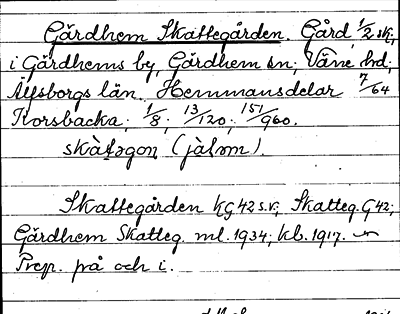 Gärdhem Skattegården. Gård 1/2 sk;
i Gärdhems by, Gärdhem sn; Väne hd;
Älvsborgs län. Hemmansdelar 7/64
Korsbacka; 1/8; 13/120; 151/960.
skàt̯əgoṇ (jàlom).
Skattegården KG 42 s.v; Skatteg. G 42;
Gärdhem Skatteg. ml. 1934; kb. 1917. ~
Prep. på och i.